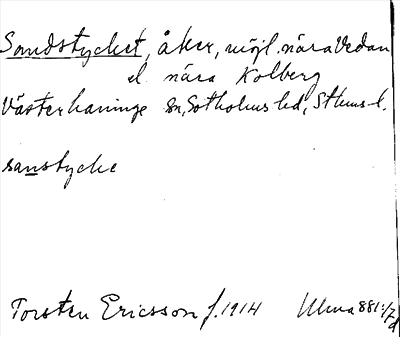 Sandstycket, åker, möjl. nära Vedan
el nära Kolberg
Västerhaninge sn, Sotholms hd, Sthms l.
sanstycke
Torsten Ericsson f. 1914 Ulma 881:/7d